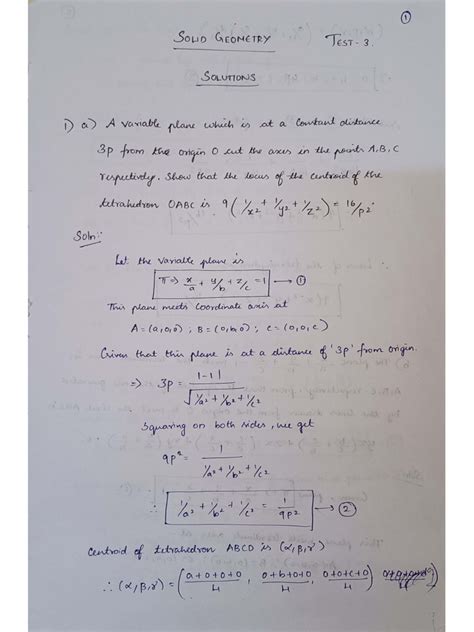 ①
SOLID GEOMETRY TEST-3.
SOLUTIONS
1) a) A variable plane which is at a constant distance
3p from the origin O cut the axes in the points A, B, C
respectively. Show that the locus of the centroid of the
tetrahedron OABC is 9(1/x² + 1/y² + 1/z²) = 16/p².
Soln:
Let the variable plane is
π ⇒ x/a + y/b + z/c = 1 → ①
This plane meets coordinate axis at
A = (a,0,0) ; B = (0,b,0) ; C = (0,0,c)
Given that this plane is at a distance of '3p' from origin.
⇒ 3p = |-1| / √(1/a² + 1/b² + 1/c²)
Squaring on both sides, we get
9p² = 1 / (1/a² + 1/b² + 1/c²)
∴ 1/a² + 1/b² + 1/c² = 1/9p² → ②
Centroid of tetrahedron ABCD is (α,β,γ)
∴ (α,β,γ) = ((a+0+0+0)/4, (0+b+0+0)/4, (0+0+c+0)/4)